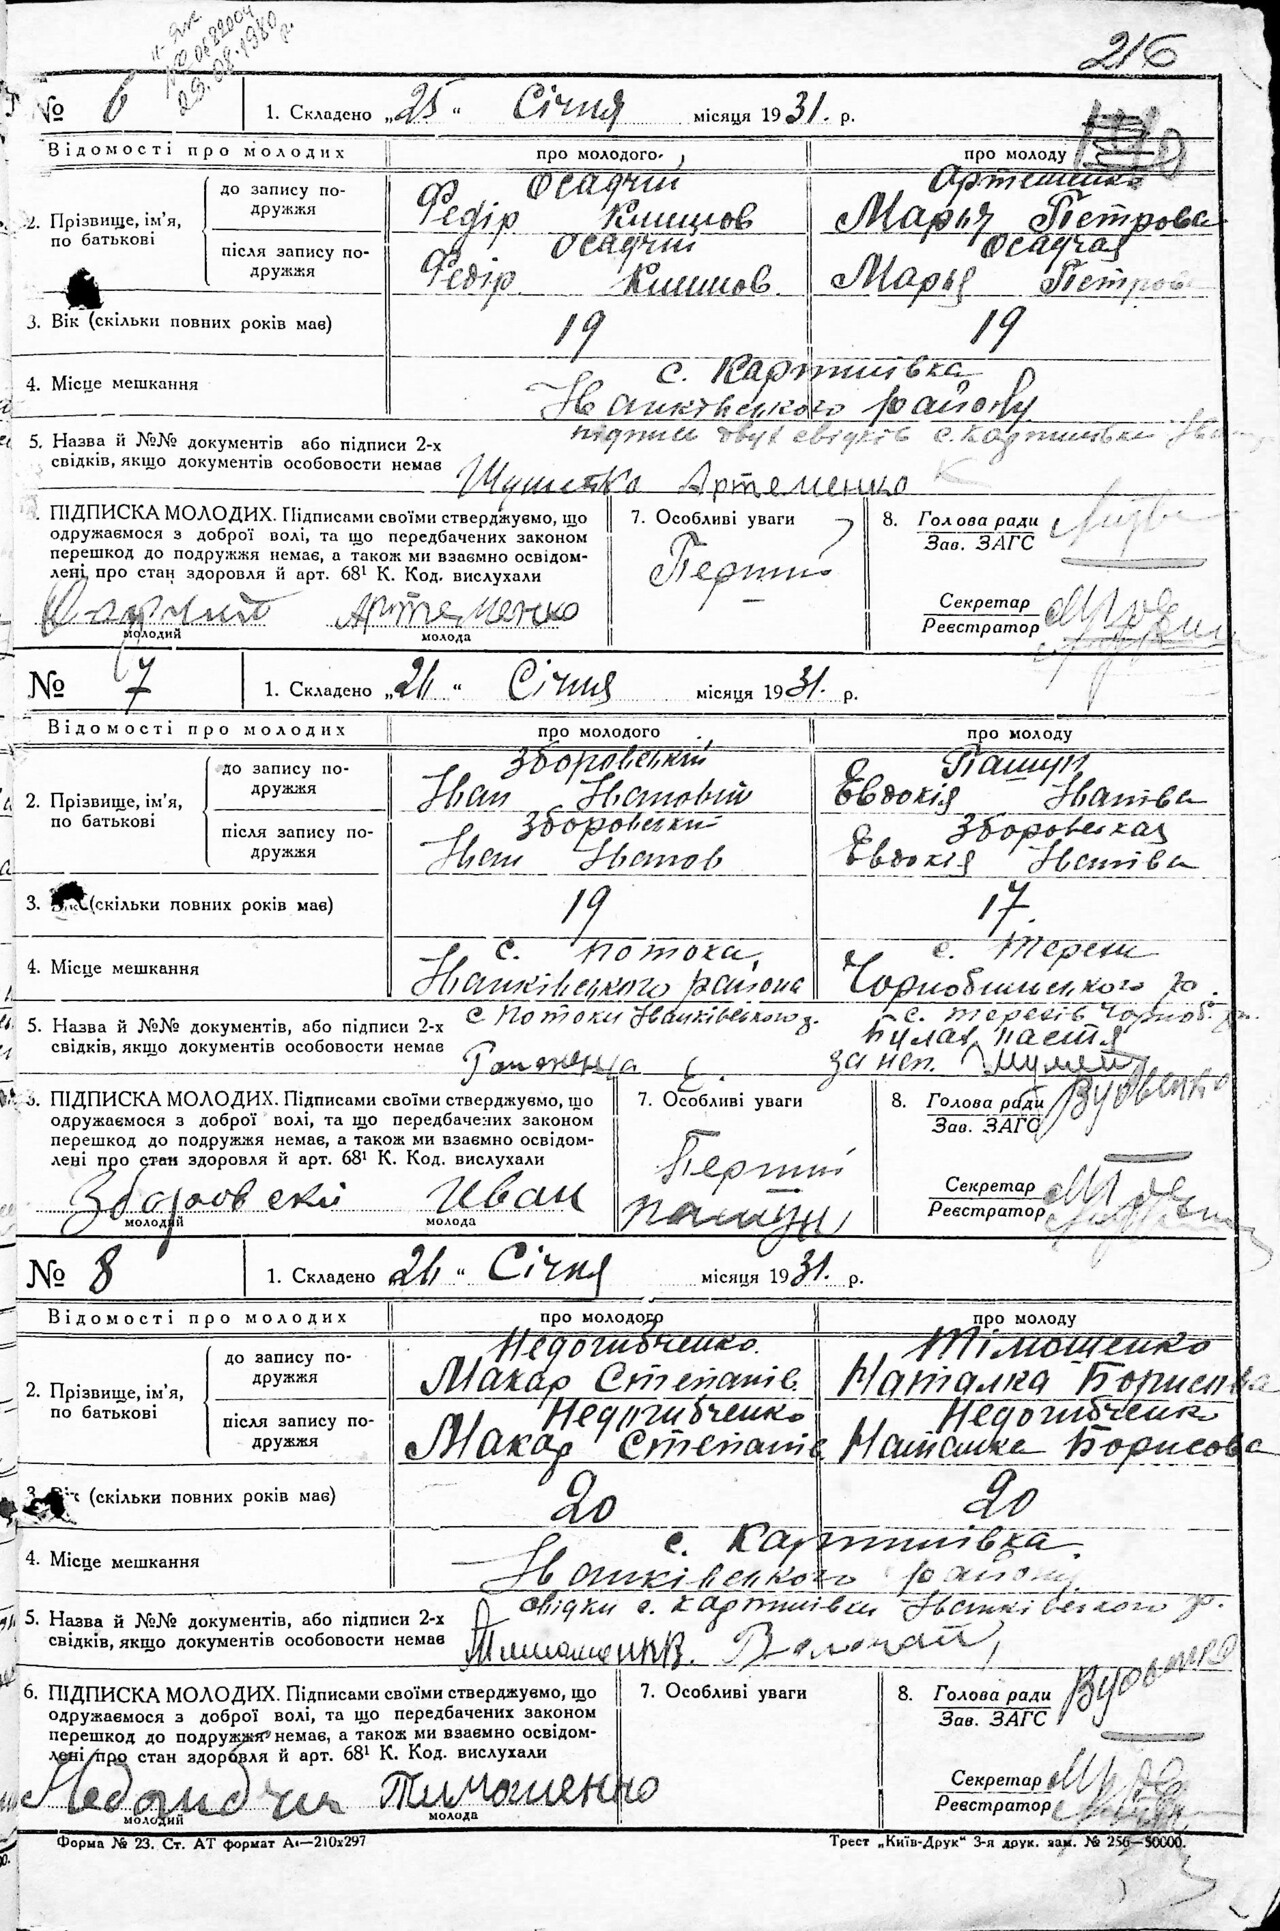 216
№ 6 1. Складено „25“ Січня місяця 1931. р.
Відомості про молодих про молодого про молоду
2. Прізвище, ім'я, по батькові
до запису подружжя
Осадчий Артеменко
Федір Климов Марья Петрова
після запису подружжя
Осадчий Осадчая
Федір Климов Марья Петрова
3. Вік (скільки повних років має) 19 19
4. Місце мешкання с. Картилівка
Іванківського району
5. Назва й №№ документів або підписи 2-х підписи двух свідків с. Картилівки
свідків, якщо документів особовости немає Артеменко
ПІДПИСКА МОЛОДИХ. Підписами своїми стверджуємо, що
одружаємося з доброї волі, та що передбачених законом
перешкод до подружжя немає, а також ми взаємно освідом-
лені про стан здоровля й арт. 68¹ К. Код. вислухали
Осадчий Артеменко
молодий молода
7. Особливі уваги
Перший
8. Голова ради
Зав. ЗАГС
Секретар
Реєстратор
№ 7 1. Складено „26“ Січня місяця 1931. р.
Відомості про молодих про молодого про молоду
2. Прізвище, ім'я, по батькові
до запису подружжя
Зборовський Пашун
Іван Івановій Евдокія Іванівa
після запису подружжя
Зборовский Зборовская
Іван Іванов Евдокія Іваніва
3. Вік (скільки повних років має) 19 17.
4. Місце мешкання с. Потока, с. Терехи
Іванківського района Чорнобильського ра.
5. Назва й №№ документів, або підписи 2-х с. Потоки Іванківського р. с. Терехів Чорноб. ра.
свідків, якщо документів особовости немає за неп.
ПІДПИСКА МОЛОДИХ. Підписами своїми стверджуємо, що
одружаємося з доброї волі, та що передбачених законом
перешкод до подружжя немає, а також ми взаємно освідом-
лені про стан здоровля й арт. 68¹ К. Код. вислухали
Зборовскі Иван
молодий молода
7. Особливі уваги
Перший
Пашун
8. Голова ради
Зав. ЗАГС
Секретар
Реєстратор
№ 8 1. Складено „26“ Січня місяця 1931. р.
Відомості про молодих про молодого про молоду
2. Прізвище, ім'я, по батькові
до запису подружжя
Недогибченко Тімошенко
Макар Степанів Наталка Борисова
після запису подружжя
Недогибченко Недогибченко
Макар Степанів Наталка Борисова
3. Вік (скільки повних років має) 20 20
4. Місце мешкання с. Картилівка
Іванківського району
5. Назва й №№ документів, або підписи 2-х свідки с. Картилівки Іванківского р.
свідків, якщо документів особовости немає
6. ПІДПИСКА МОЛОДИХ. Підписами своїми стверджуємо, що
одружаємося з доброї волі, та що передбачених законом
перешкод до подружжя немає, а також ми взаємно освідом-
лені про стан здоровля й арт. 68¹ К. Код. вислухали
Тимошенко
молодий молода
7. Особливі уваги
8. Голова ради
Зав. ЗАГС
Секретар
Реєстратор
Форма № 23. Ст. АТ формат А₄—210х297 Трест „Київ-Друк“ 3-я друк. зам. № 256—50000.